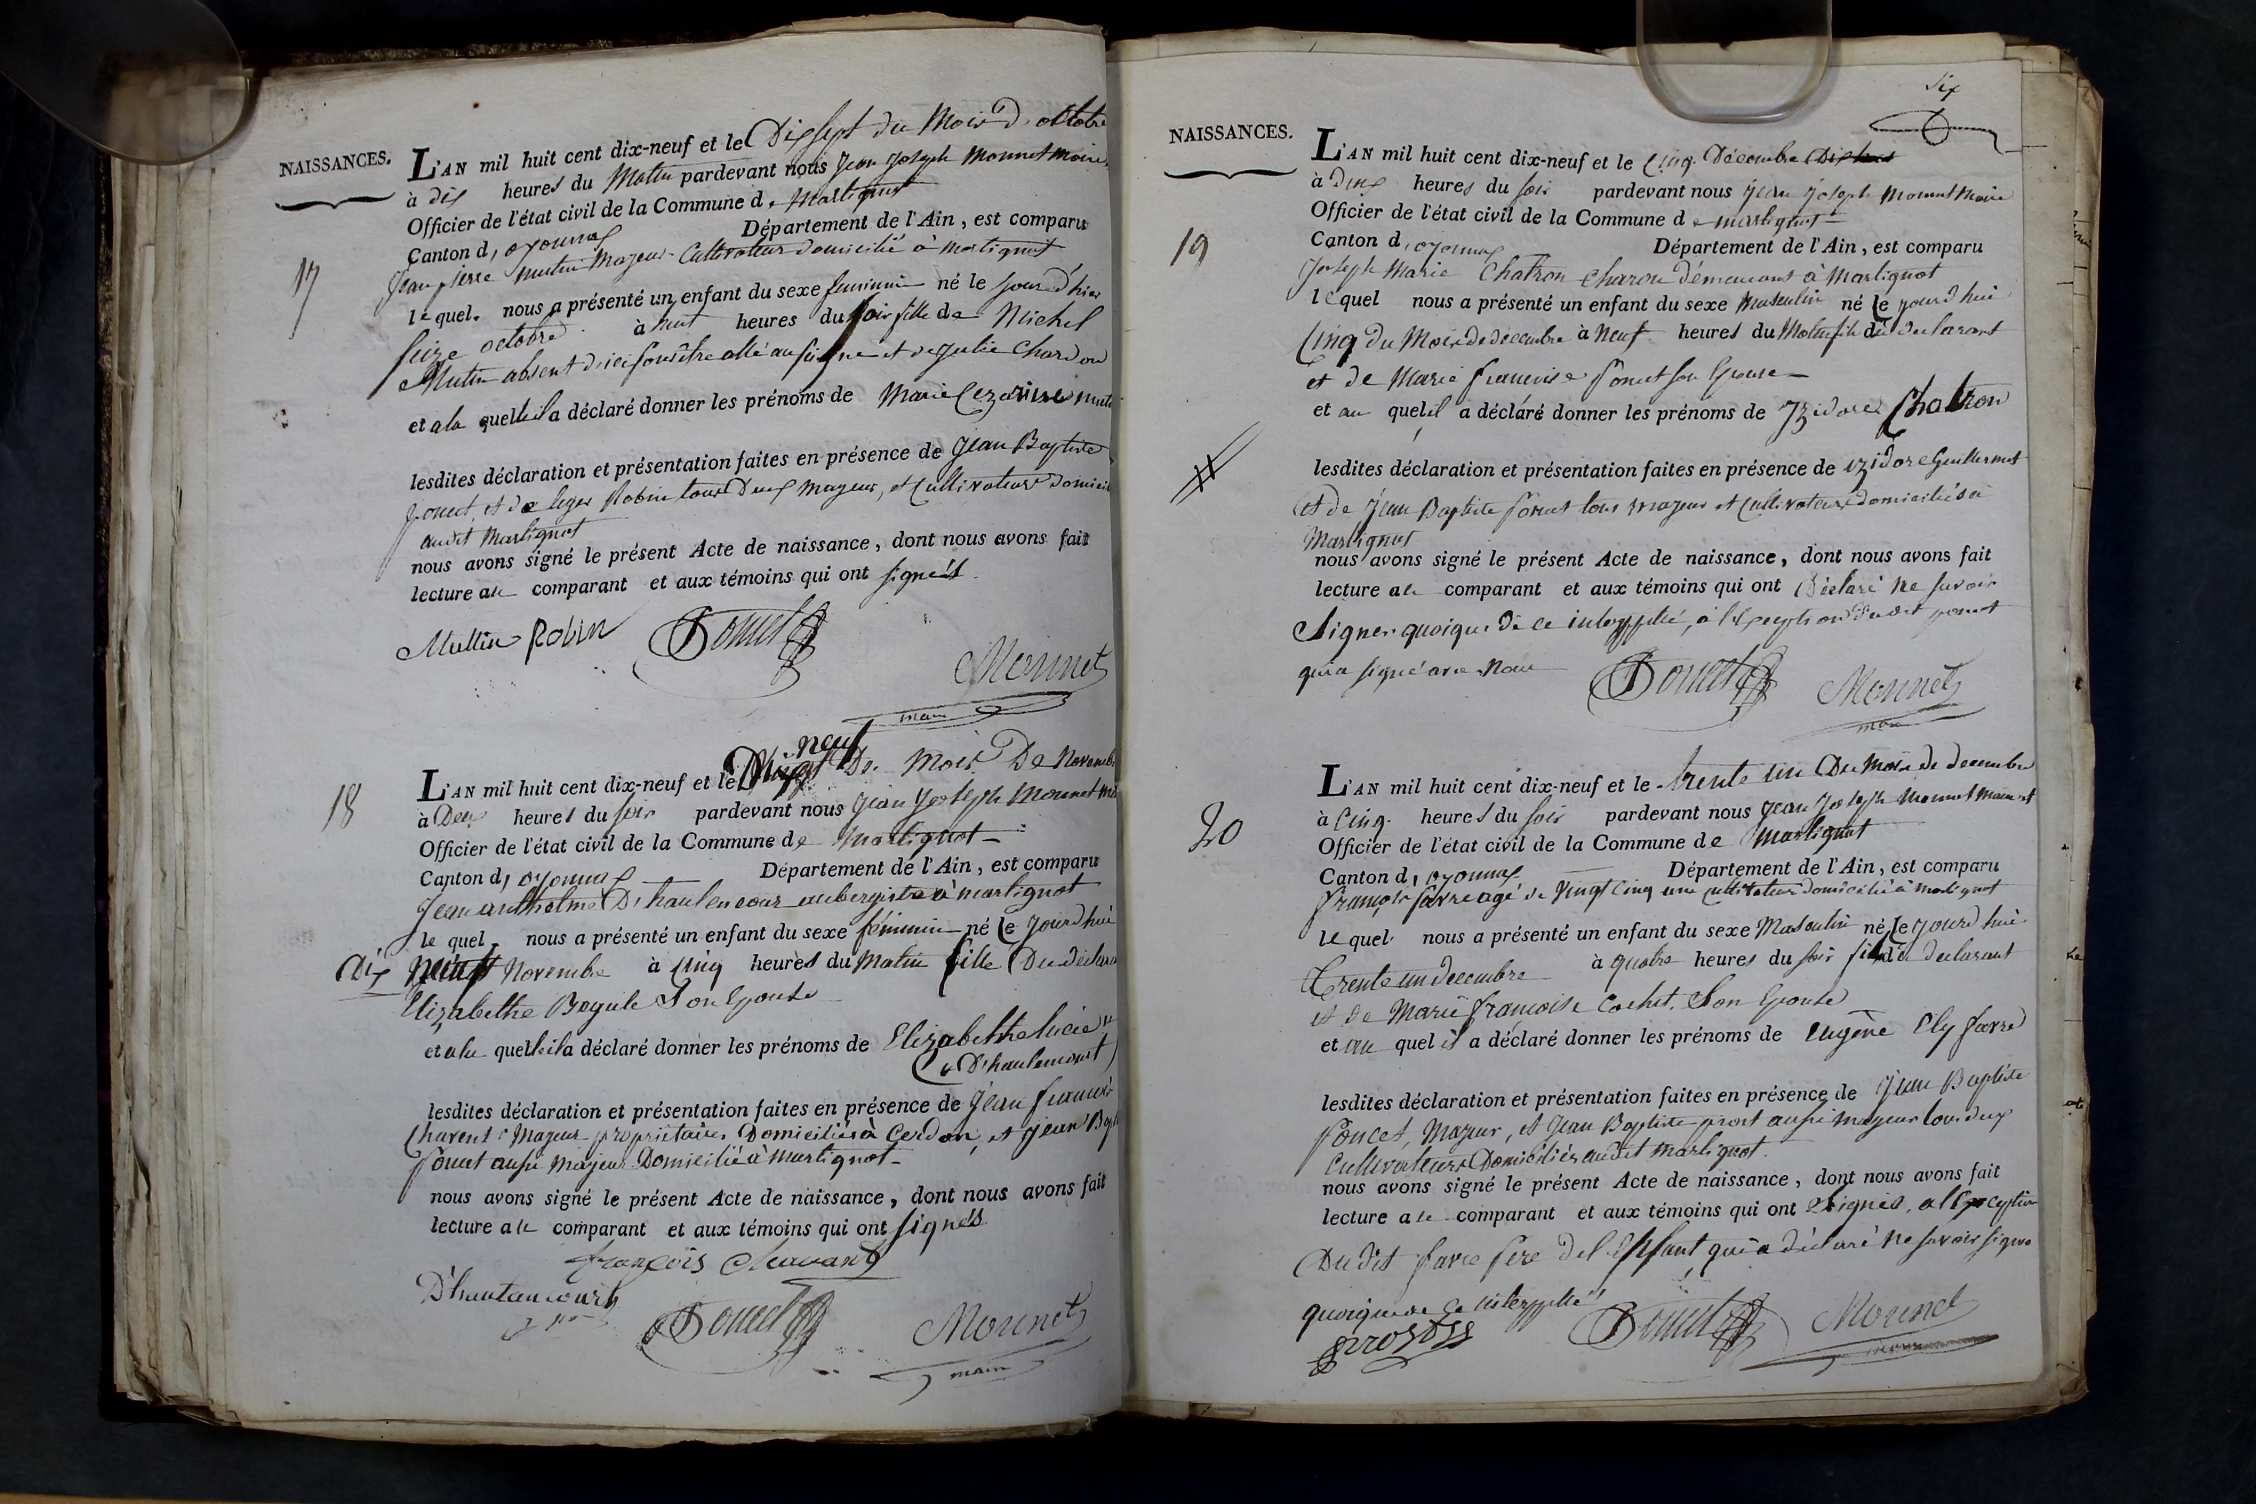 NAISSANCES.
17
L'AN mil huit cent dix-neuf et le Dixsept du Mois d'octobre
à dix heures du Matin pardevant nous Jean Joseph Monnet Maire
Officier de l'état civil de la Commune de Martignat
Canton d'oyonnax Département de l'Ain, est comparu
Jean pierre mutin Majeur Cultivateur domicilié à Martignat
lequel nous a présenté un enfant du sexe feminin né le jour d'hier
seize octobre à heures du soir fille de Michel
Mutin absent d'ici et de Julie Chardon
et a la quelle il a déclaré donner les prénoms de Marie Cezarine
lesdites déclaration et présentation faites en présence de Jean Baptiste
ponset et de leger Robin tous Deux majeurs, et Cultivateurs domicil
audit Martignat
nous avons signé le présent Acte de naissance, dont nous avons fait
lecture au comparant et aux témoins qui ont signés
Muttin Robin Poncet Monnet
maire
18
L'AN mil huit cent dix-neuf et le neuf du Mois De Novemb
à Deux heures du soir pardevant nous Jean Joseph Monnet
Officier de l'état civil de la Commune de Martignat
Canton d'oyonnax Département de l'Ain, est comparu
Jean anthelme D'hautencour aubergiste à martignat
le quel nous a présenté un enfant du sexe féminin né le jourd'hui
Dix neuf Novembre à cinq heures du Matin fille Du déclara
Elizabethe Begule Son Epouse
et a la quelle il a déclaré donner les prénoms de Elizabethe lucie
D'hautencourt
lesdites déclaration et présentation faites en présence de Jean francois
Majeur propriétaire Domicilié à Cerdon, et Jean Bap
Poncet aussi Majeur Domicilié à Martignat
nous avons signé le présent Acte de naissance, dont nous avons fait
lecture au comparant et aux témoins qui ont signés
françois
D'hautancourt
Poncet Monnet
maire
Six
NAISSANCES.
19
L'AN mil huit cent dix-neuf et le Cinq Décembre
à Deux heures du soir pardevant nous Jean Joseph Monnet Maire
Officier de l'état civil de la Commune de martignat
Canton d'oyonnax Département de l'Ain, est comparu
Joseph Marie Chatron Charon démeurant à Martignat
lequel nous a présenté un enfant du sexe Masculin né le jourd'hui
Cinq du Mois de décembre à Neuf heures du Matin fils du declarant
et de Marie francoise Poncet son Epouse
et au quel il a déclaré donner les prénoms de Izidore Chatron
lesdites déclaration et présentation faites en présence de izidore Guillermet
et de Jean Baptiste Poncet tous majeur et Cultivateurs domiciliés à
Martignat
nous avons signé le présent Acte de naissance, dont nous avons fait
lecture au comparant et aux témoins qui ont Déclaré ne savoir
Signer quoique de ce interppellé, à l'Exception dudit poncet
qui a signé avec Nous
Poncet Monnet
maire
20
L'AN mil huit cent dix-neuf et le trente un Du Mois de decembre
à Cinq heures du soir pardevant nous Jean Joseph Monnet Maire et
Officier de l'état civil de la Commune de Martignat
Canton d'oyonnax Département de l'Ain, est comparu
François favre agé de Vingt Cinq ans cultivateur domicilié à Martignat
lequel nous a présenté un enfant du sexe Masculin né le jourd'hui
Trente un decembre à quatre heures du soir fils du declarant
et de Marie francoise Cochet Son Epouse
et au quel il a déclaré donner les prénoms de Eugène Ely favre
lesdites déclaration et présentation faites en présence de Jean Baptiste
Poncet, Majeur, et Jean Baptiste prost aussi majeur tous deux
Cultivateurs Domiciliés audit martignat.
nous avons signé le présent Acte de naissance, dont nous avons fait
lecture au comparant et aux témoins qui ont Signés, a l'Exception
Du dit favre père De l'Enfant, qui a déclaré ne savoir signer
quoique de ce interppellé
Poncet Monnet